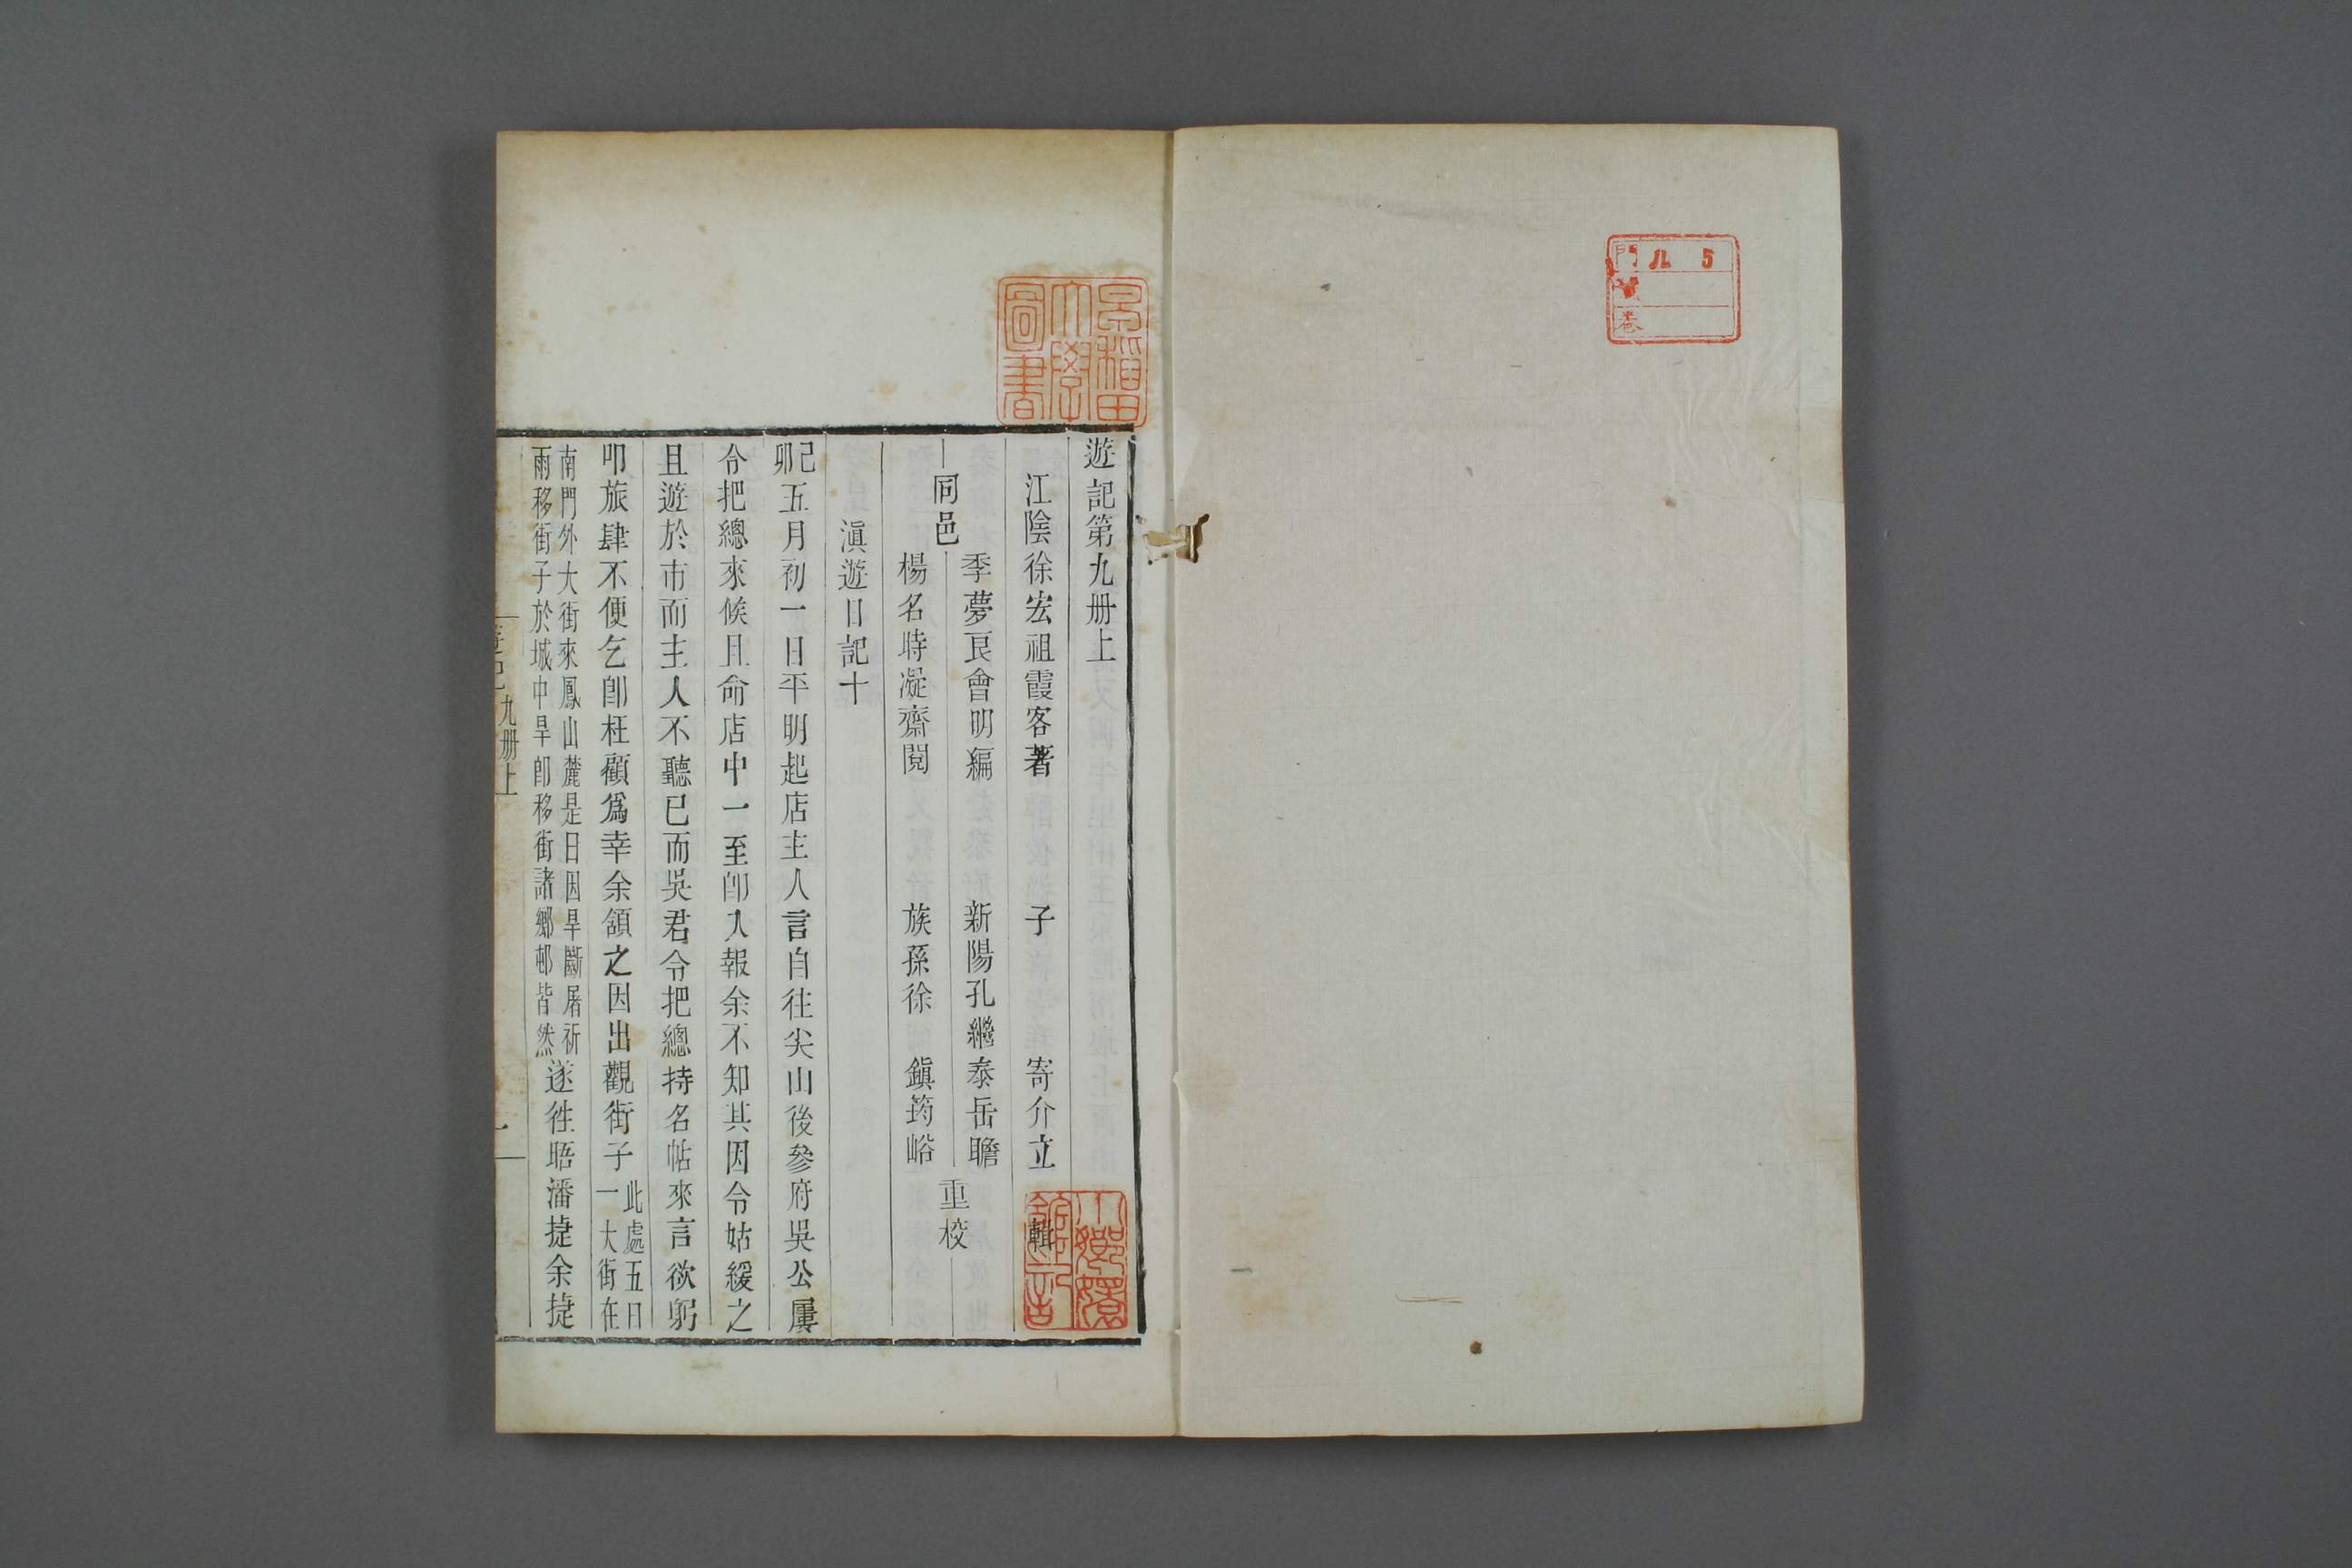 門 八 5
号
卷
早稲田大學圖書
遊記第九册上
江陰徐宏祖霞客著 子 寄介立 輯
同邑
季夢良會明編 新陽孔繼泰岳瞻
楊名時凝齋閱 族孫徐 鎭筠峪
重校
滇遊日記十
己卯五月初一日平明起店主人言自往尖山後參府吳公屢
令把總來候且命店中一至卽入報余不知其因令姑緩之
且遊於市而主人不聽已而吳君令把總持名帖來言欲躬
叩旅肆不便乞卽枉顧爲幸余頷之因出觀街子此處五日一大街在
南門外大街來鳳山麓是日因旱斷屠祈
雨移街子於城中旱卽移街諸鄉邨皆然
遂徃晤潘捷余捷
遊記 九册上 一